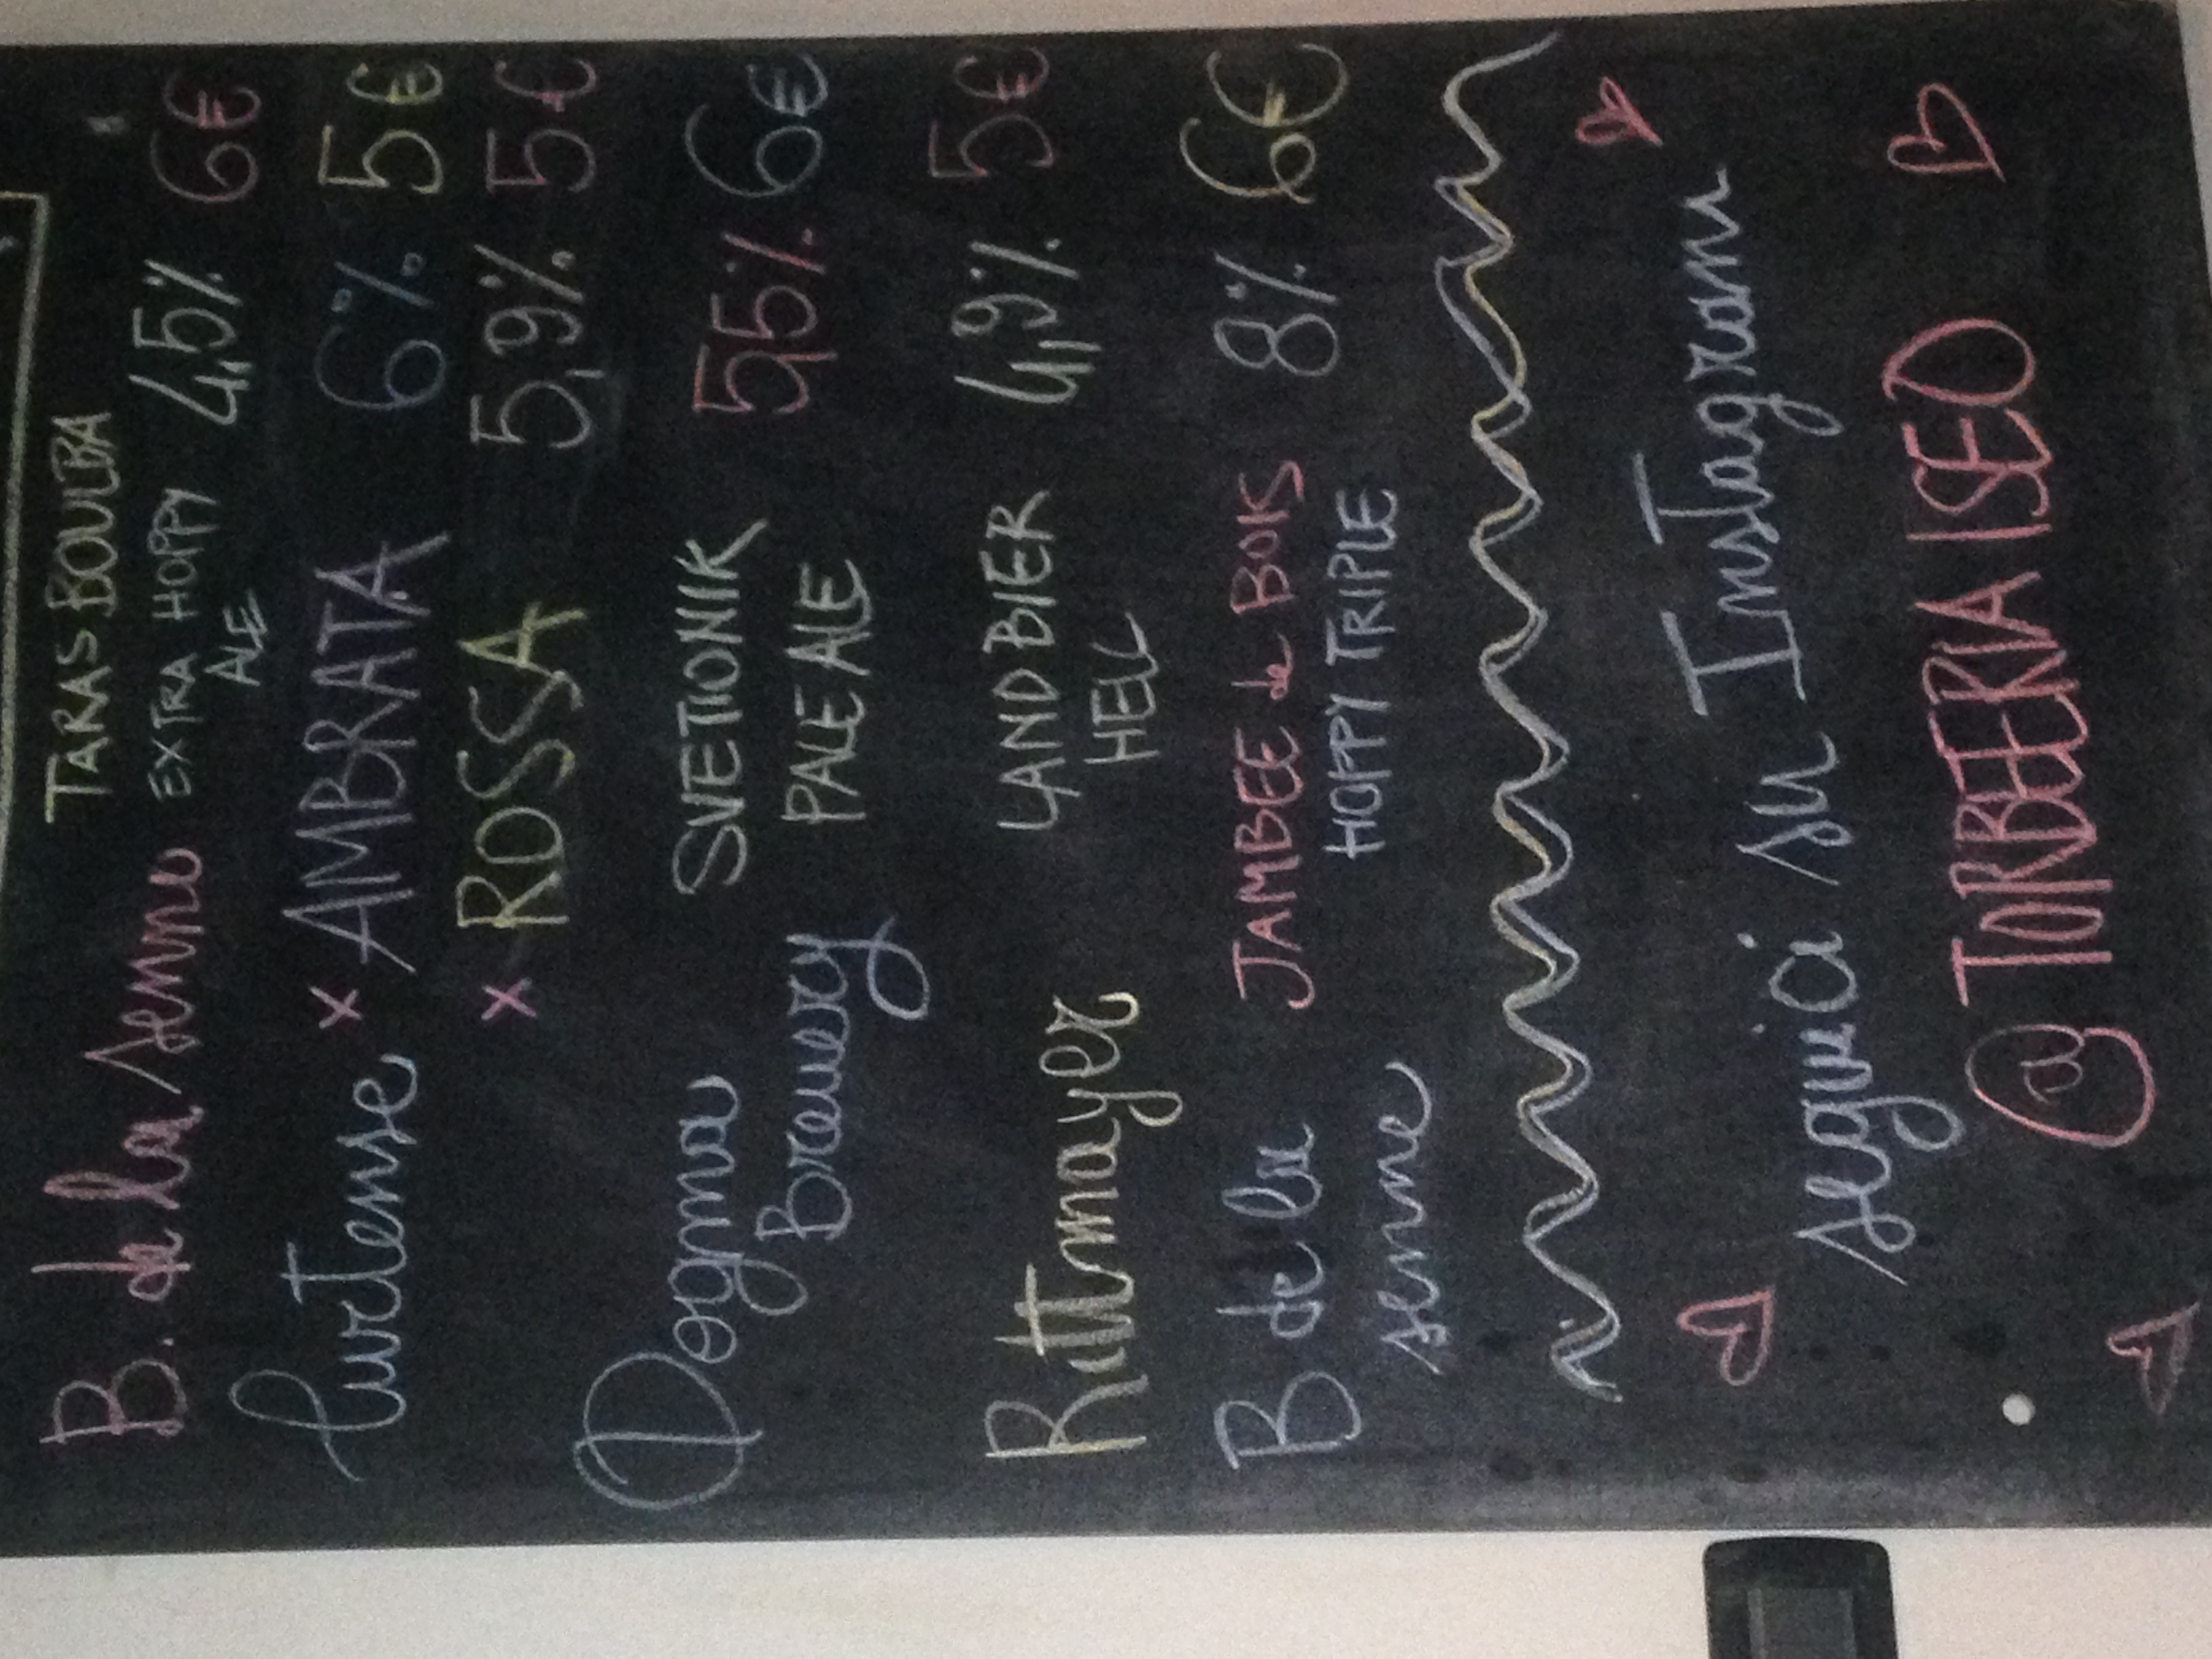 TARAS BOULBA
B. de la senne EXTRA HOPPY 4,5% 6€
ALE
Curtense x AMBRATA 6% 5€
x ROSSA 5,9% 5€
Dogma SVETIONIK 5,5% 6€
Brewery PALE ALE
Rittmayer LANDBIER 4,9% 5€
HELL
B de la JAMBEE de BOIS 8% 6€
senne HOPPY TRIPLE
seguici su Instagram
@ TORBEERIA ISEO